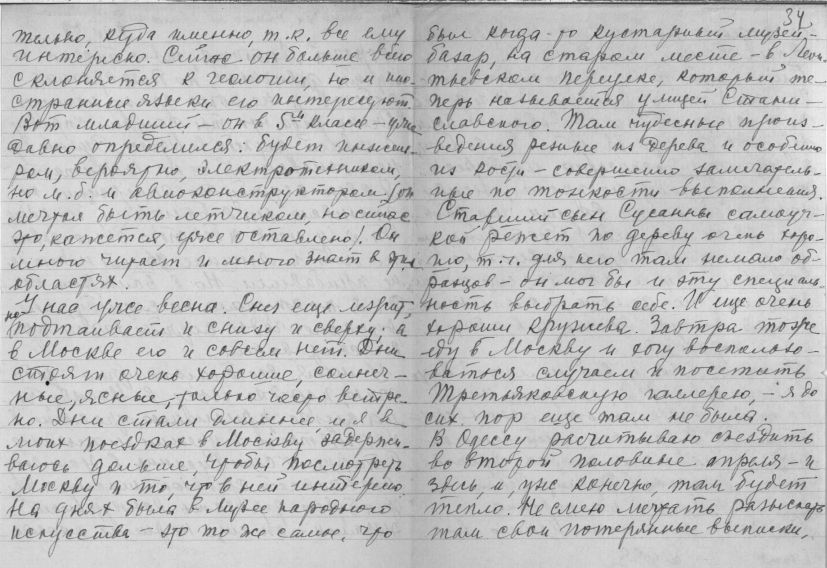 только, куда именно, т.к. все ему
интересно. Сейчас он больше всего
склоняется к геологии, но и ино-
странные языки его интересуют.
Вот младший – он в 5м классе – уже
давно определился: будет инжене-
ром, вероятно, электротехником,
но м.б. и авиоконструктором. (он
мечтал быть летчиком, но сейчас
это, кажется, уже оставлено). Он
много читает и много знает в этих
областях.
У нас уже весна. Снег еще лежит,
но подтаивает и снизу и сверху, а
в Москве его и совсем нет. Дни
стоят очень хорошие, солнеч-
ные, ясные, только часто ветре-
но. Дни стали длиннее, и я в
моих поездках в Москву задержи-
ваюсь дольше, чтобы посмотреть
Москву и то, что в ней интересно.
На днях была в Музее народного
искусства – это то же самое, что
34
был когда-то кустарный музей-
базар, на старом месте – в Леон-
тьевском переулке, который те-
перь называется улицей Стани-
славского. Там чудесные произ-
ведения резные из дерева и особенно
из кости – совершенно замечатель-
ные по тонкости выполнения.
Старший сын Сусанны самоуч-
кой режет по дереву очень хоро-
шо, т.ч. для него там немало об-
разцов – он мог бы и эту специаль-
ность выбрать себе. И еще очень
хороши кружева. Завтра тоже
еду в Москву и хочу воспользо-
ваться случаем и посетить
Третьяковскую галлерею, – я до
сих пор еще там не была.
В Одессу расчитываю съездить
во второй половине апреля – и
здесь, и, уже конечно, там будет
тепло. Не смею мечтать разыскать
там свои потерянные выписки,